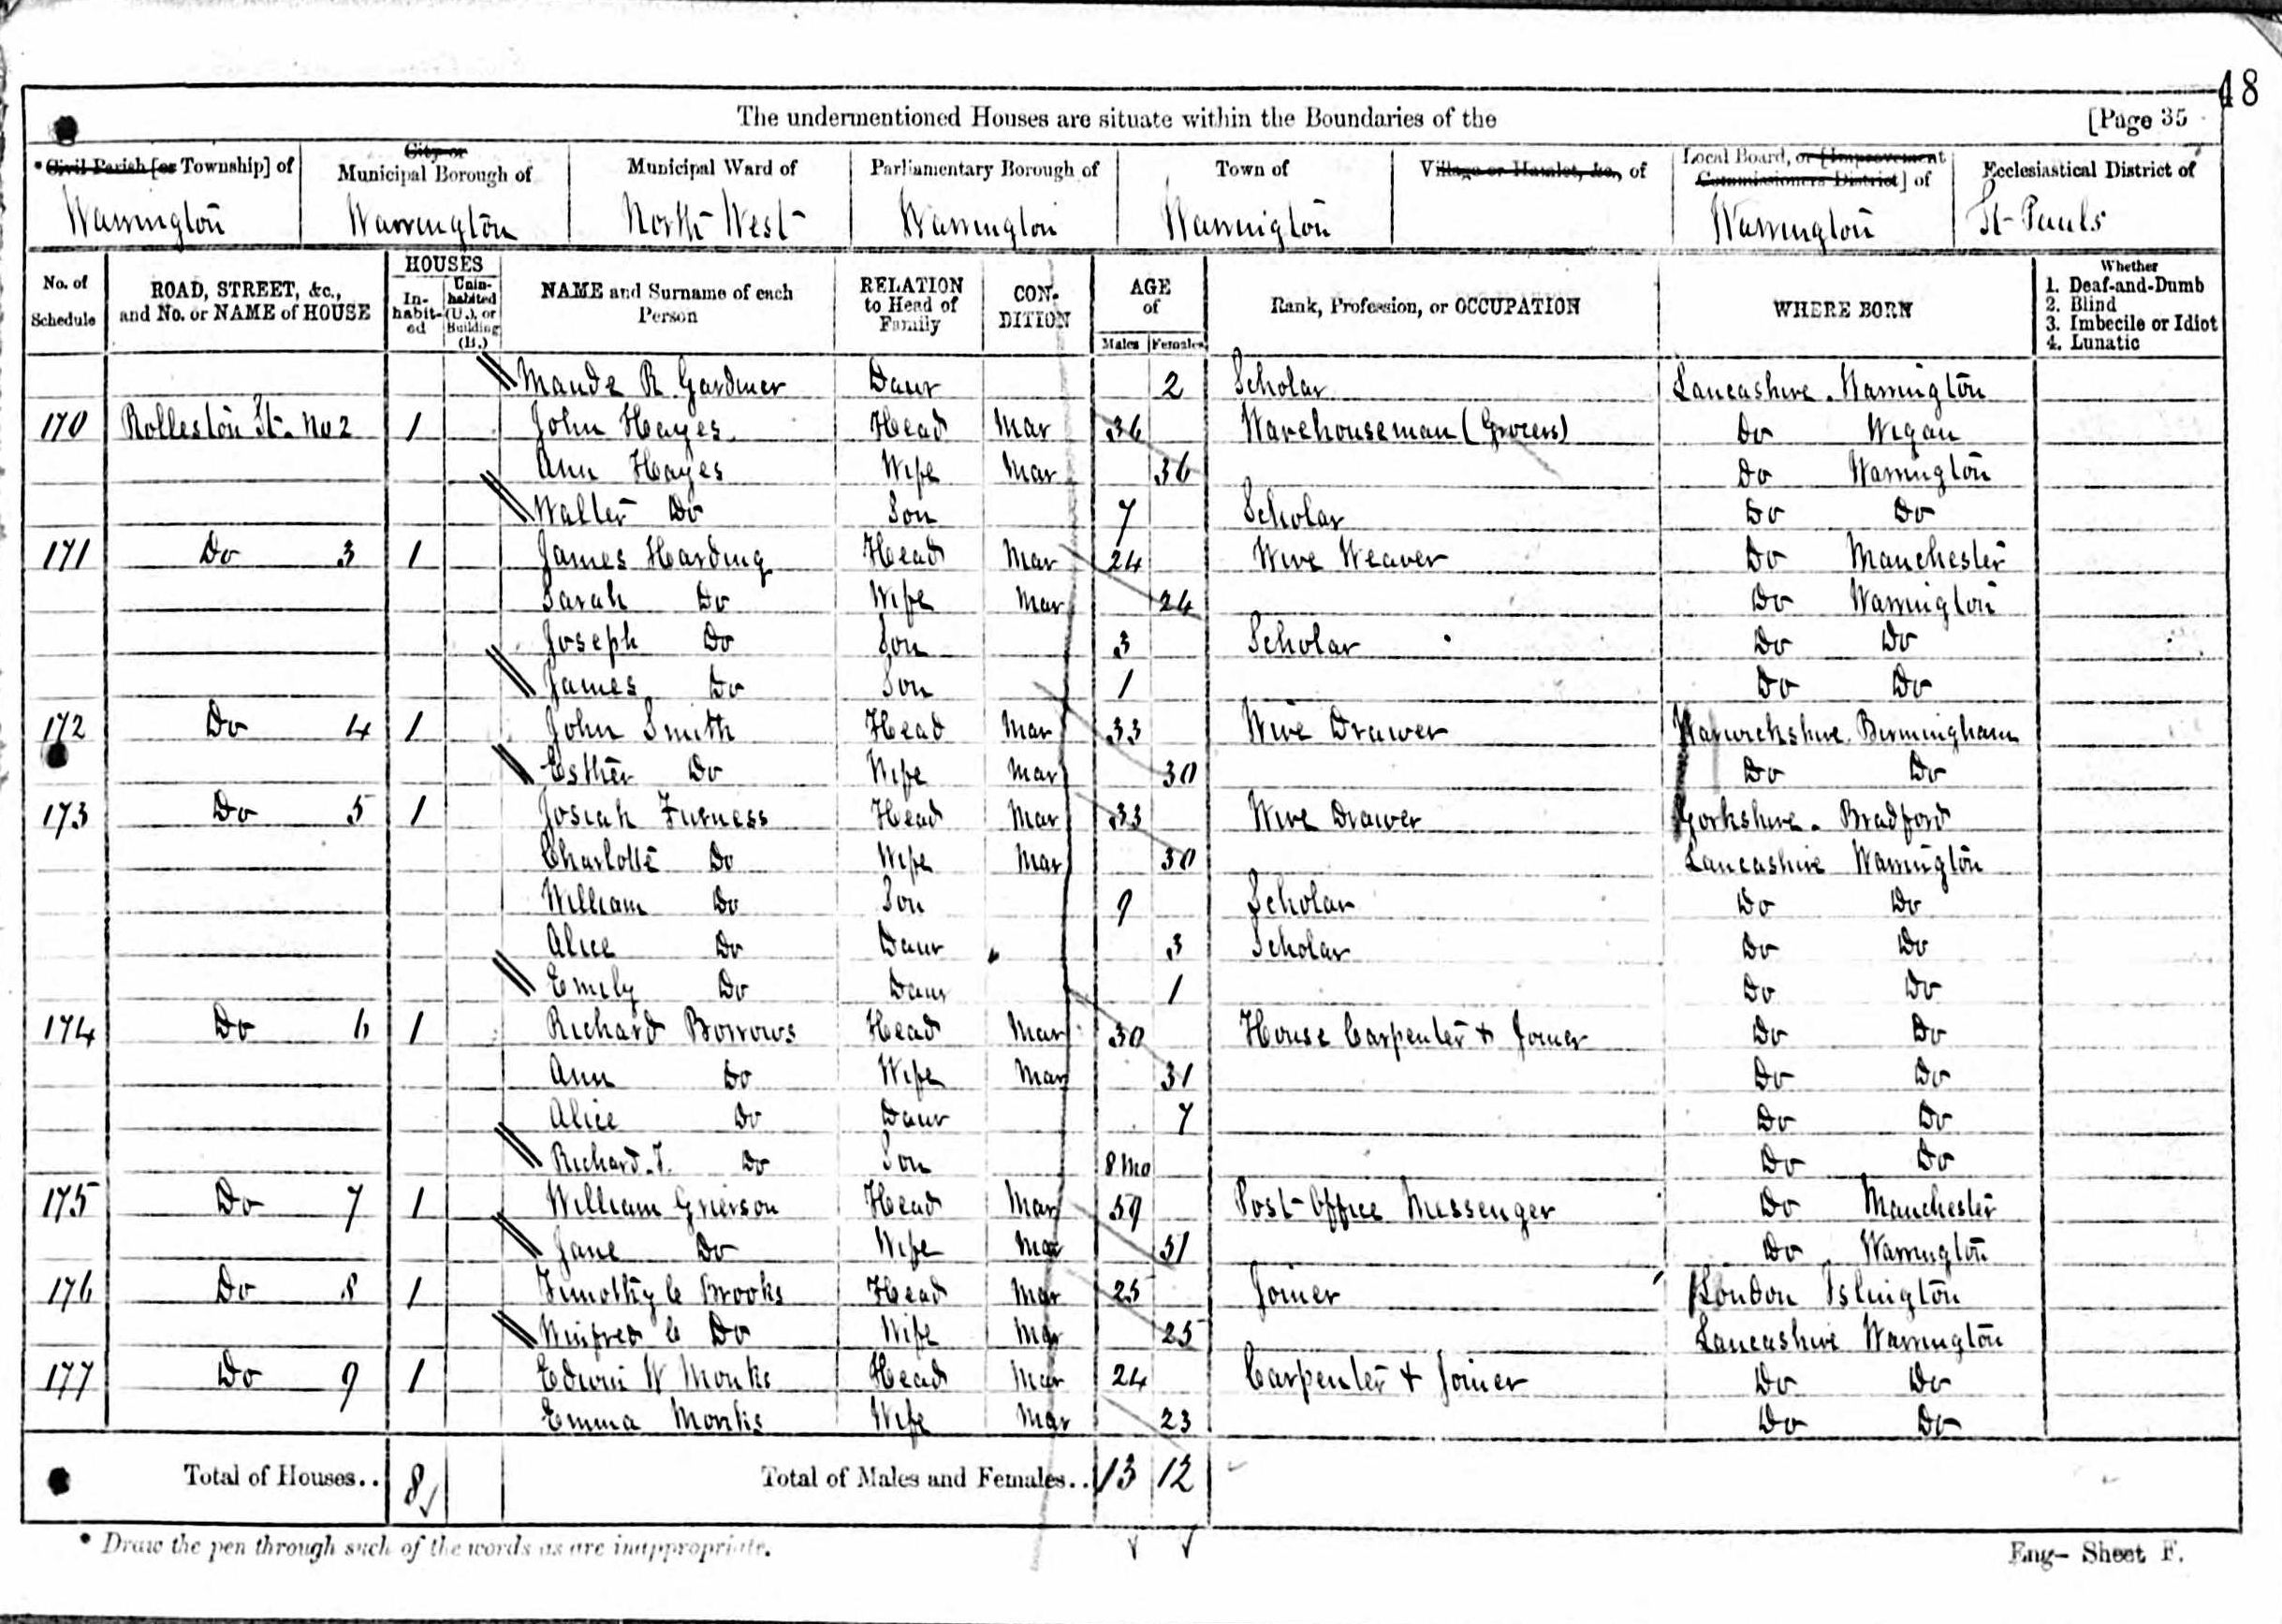 48
The undermentioned Houses are situate within the Boundaries of the [Page 35
* Civil Parish [or Township] of
City or Municipal Borough of
Municipal Ward of
Parliamentary Borough of
Town of
Village or Hamlet, &c., of
Local Board, or [Improvement Commissioners District] of
Ecclesiastical District of
Warrington Warrington North West Warrington Warrington Warrington St Pauls
No. of Schedule
ROAD, STREET, &c., and No. or NAME of HOUSE
HOUSES
In-habit-ed
Unin-habited (U.), or Building (B.)
NAME and Surname of each Person
RELATION to Head of Family
CON-DITION
AGE of
Males Females
Rank, Profession, or OCCUPATION
WHERE BORN
Whether
1. Deaf-and-Dumb
2. Blind
3. Imbecile or Idiot
4. Lunatic
Maude R. Gardner Daur 2 Scholar Lancashire. Warrington
170 Rolleston St. No 2 1 John Hayes Head Mar 36 Warehouseman (Grocers) Do Wigan
Ann Hayes Wife Mar 36 Do Warrington
Walter Do Son 7 Scholar Do Do
171 Do 3 1 James Harding Head Mar 24 Wire Weaver Do Manchester
Sarah Do Wife Mar 24 Do Warrington
Joseph Do Son 3 Scholar Do Do
James Do Son 1 Do Do
172 Do 4 1 John Smith Head Mar 33 Wire Drawer Warwickshire. Birmingham
Esther Do Wife Mar 30 Do Do
173 Do 5 1 Josiah Furness Head Mar 33 Wire Drawer Yorkshire. Bradford
Charlotte Do Wife Mar 30 Lancashire Warrington
William Do Son 9 Scholar Do Do
Alice Do Daur 3 Scholar Do Do
Emily Do Daur 1 Do Do
174 Do 6 1 Richard Borrows Head Mar 30 House Carpenter & Joiner Do Do
Ann Do Wife Mar 31 Do Do
Alice Do Daur 7 Do Do
Richard. J. Do Son 8 Mo Do Do
175 Do 7 1 William Grierson Head Mar 59 Post-Office Messenger Do Manchester
Jane Do Wife Mar 51 Do Warrington
176 Do 8 1 Timothy C Brooks Head Mar 25 Joiner London Islington
Winifred C Do Wife Mar 25 Lancashire Warrington
177 Do 9 1 Edwin W Monks Head Mar 24 Carpenter & Joiner Do Do
Emma Monks Wife Mar 23 Do Do
Total of Houses.. 8 Total of Males and Females.. 13 12
* Draw the pen through such of the words as are inappropriate.
Eng- Sheet F.